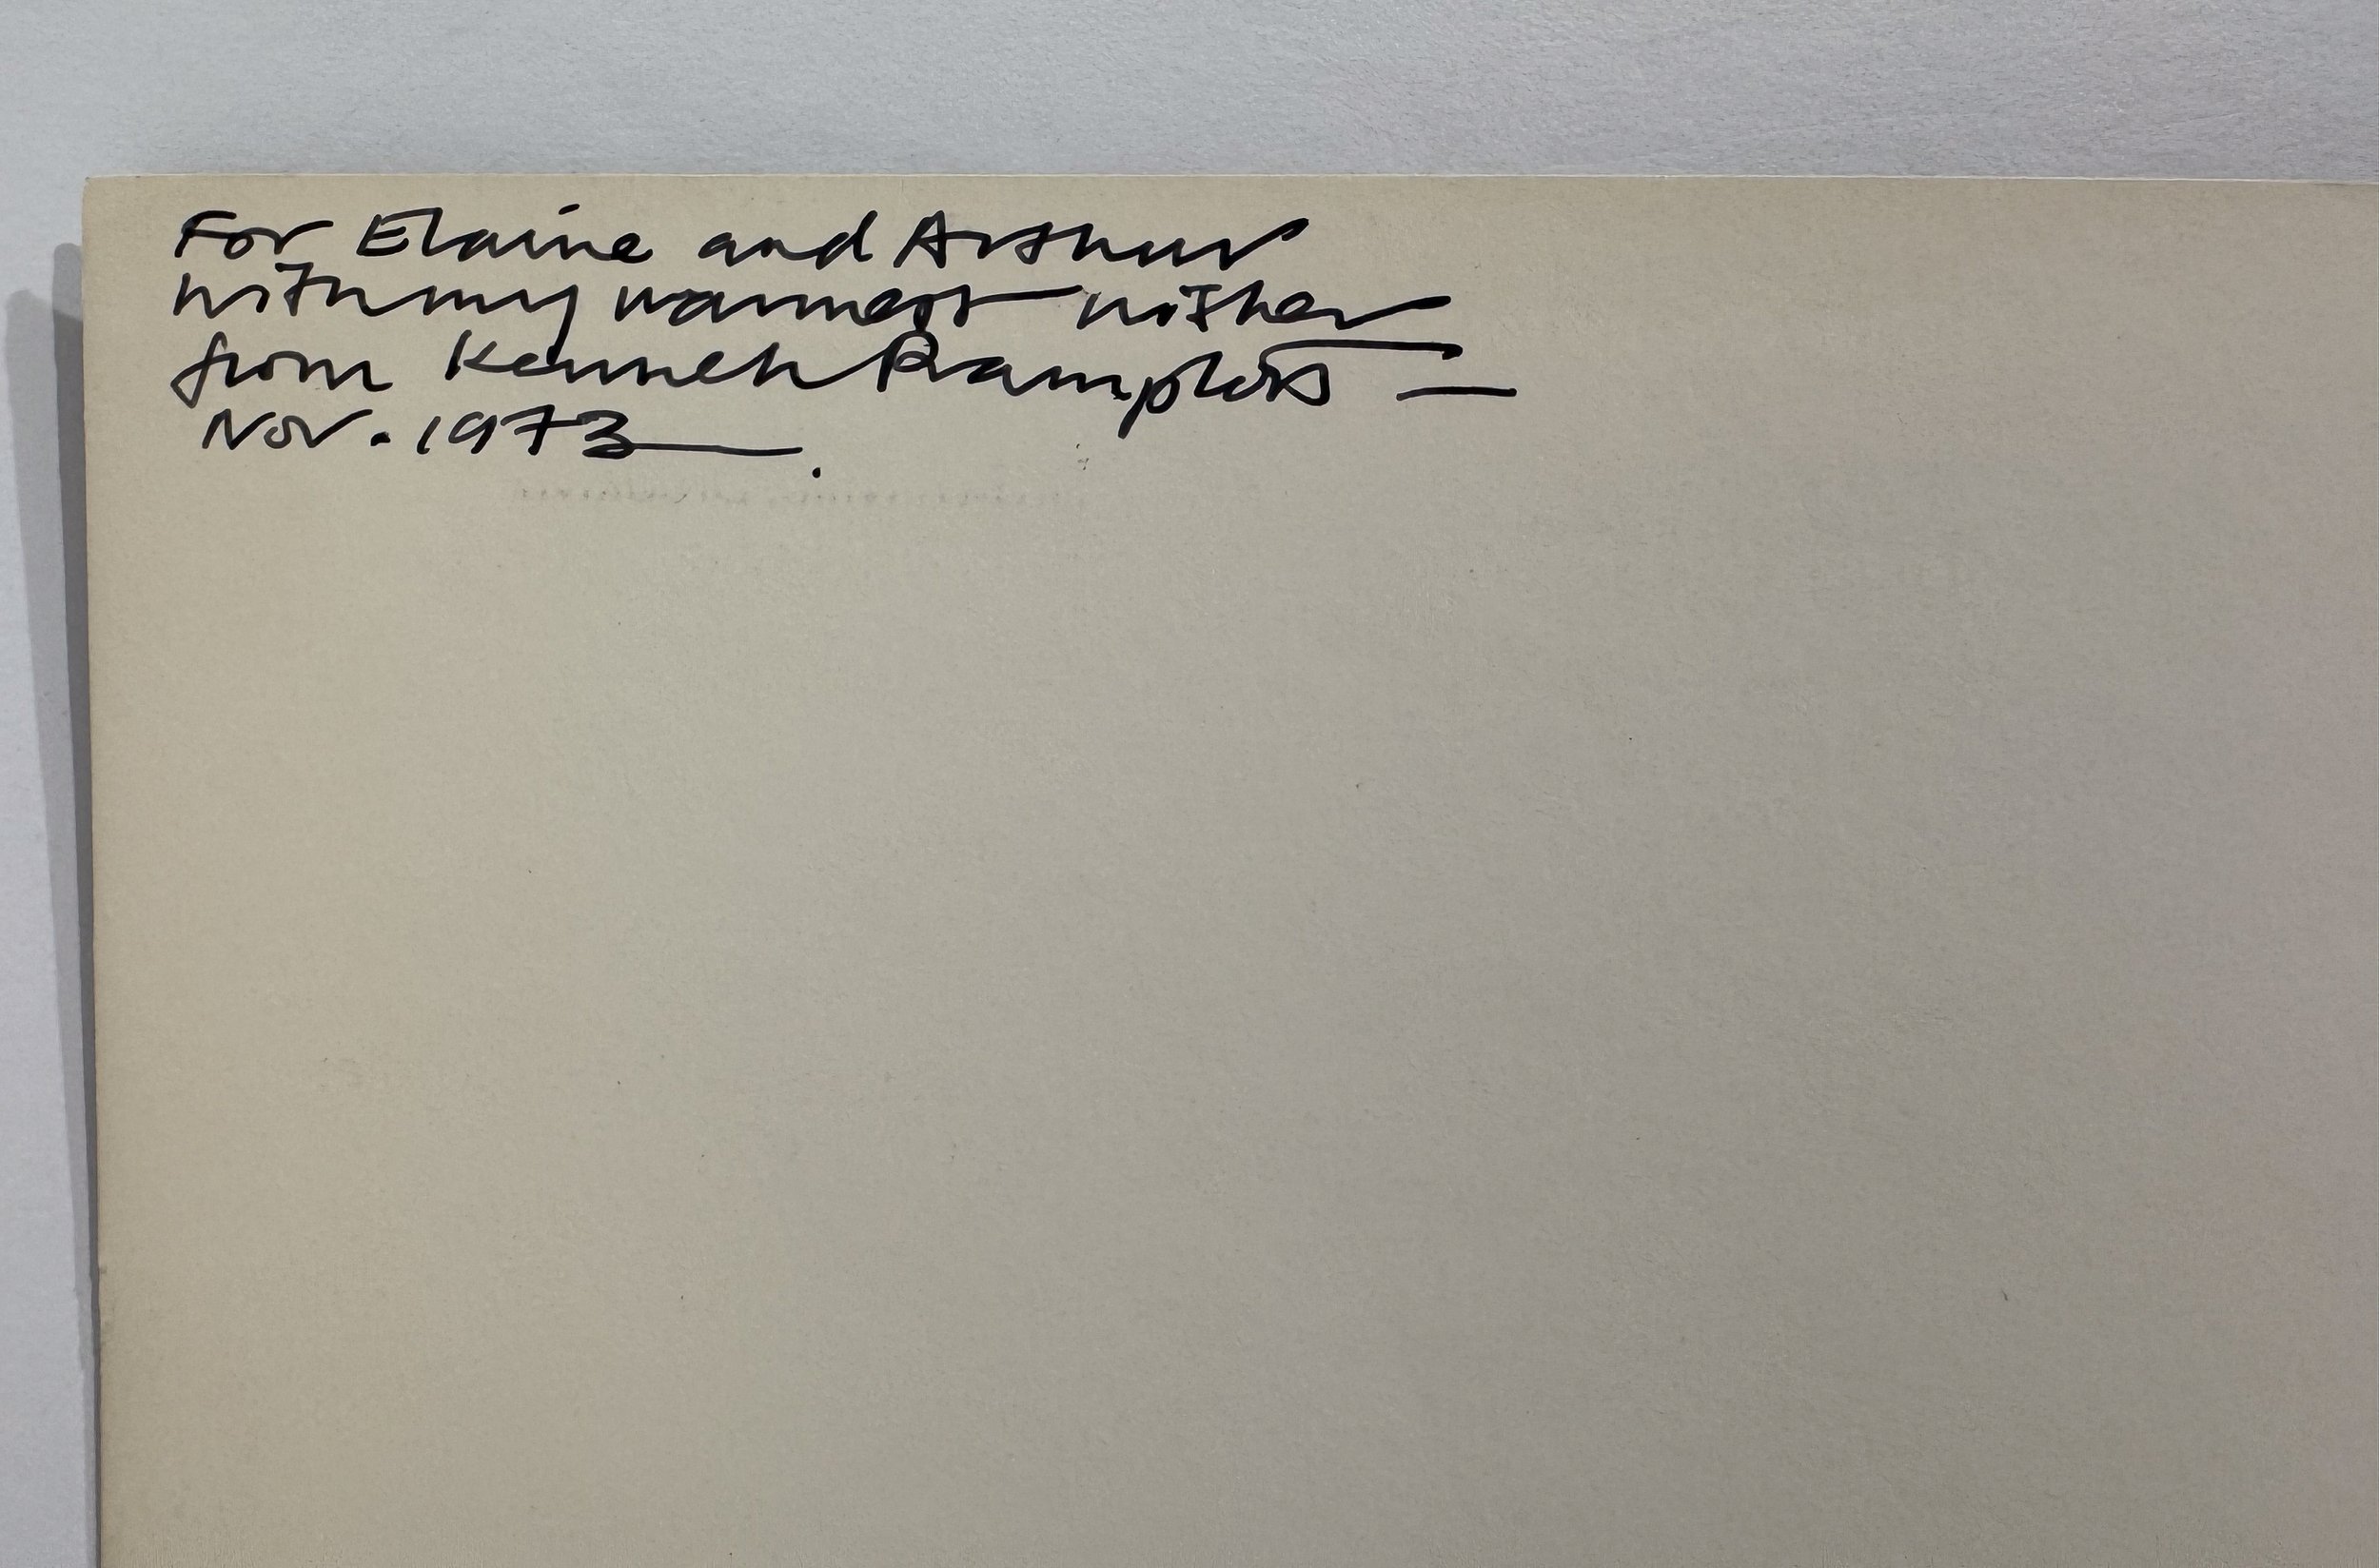 For Elaine and Arthur
with my warmest wishes
from Kenneth
Nov. 1973.